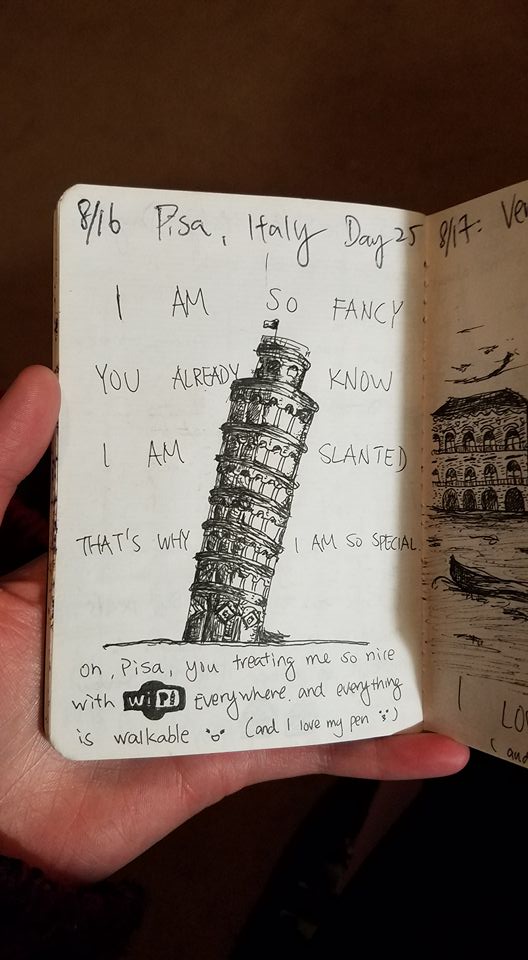 8/16 Pisa, Italy Day 25
I AM SO FANCY
YOU ALREADY KNOW
I AM SLANTED
THAT'S WHY I AM SO SPECIAL.
Oh, Pisa, you treating me so nice
with WiFi Everywhere. and everything
is walkable (and I love my pen )
8/17.
I